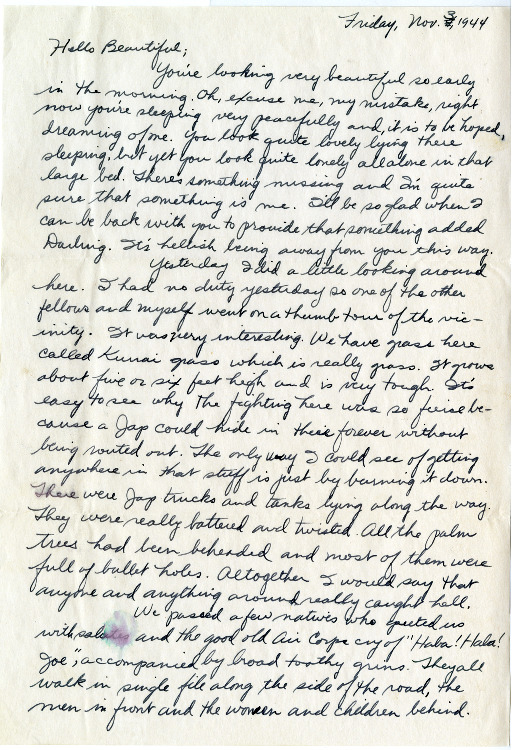 Friday, Nov. 3, 1944
Hello Beautiful;
You're looking very beautiful so early
in the morning. Oh, excuse me, my mistake, right
now you're sleeping very peacefully and, it is to be hoped,
dreaming of me. You look quite lovely lying there
sleeping, but yet you look quite lonely all alone in that
large bed. There's something missing and I'm quite
sure that something is me. I'll be so glad when I
can be back with you to provide that something added
Darling. It's hellish being away from you this way.
Yesterday I did a little looking around
here. I had no duty yesterday so one of the other
fellows and myself went on a thumb tour of the vic-
inity. It was very interesting. We have grass here
called Kunai grass which is really grass. It grows
about five or six feet high and is very tough. It's
easy to see why the fighting here was so fierse be-
cause a Jap could hide in there forever without
being routed out. The only way I could see of getting
anywhere in that stuff is just by burning it down.
There were Jap trucks and tanks lying along the way.
They were really battered and twisted. All the palm
trees had been beheaded and most of them were
full of bullet holes. Altogether I would say that
anyone and anything around really caught hell.
We passed a few natives who greeted us
with salutes and the good old Air Corps cry of "Haba! Haba!
Joe", accompanied by broad toothy grins. They all
walk in single file along the side of the road, the
men in front and the women and children behind.